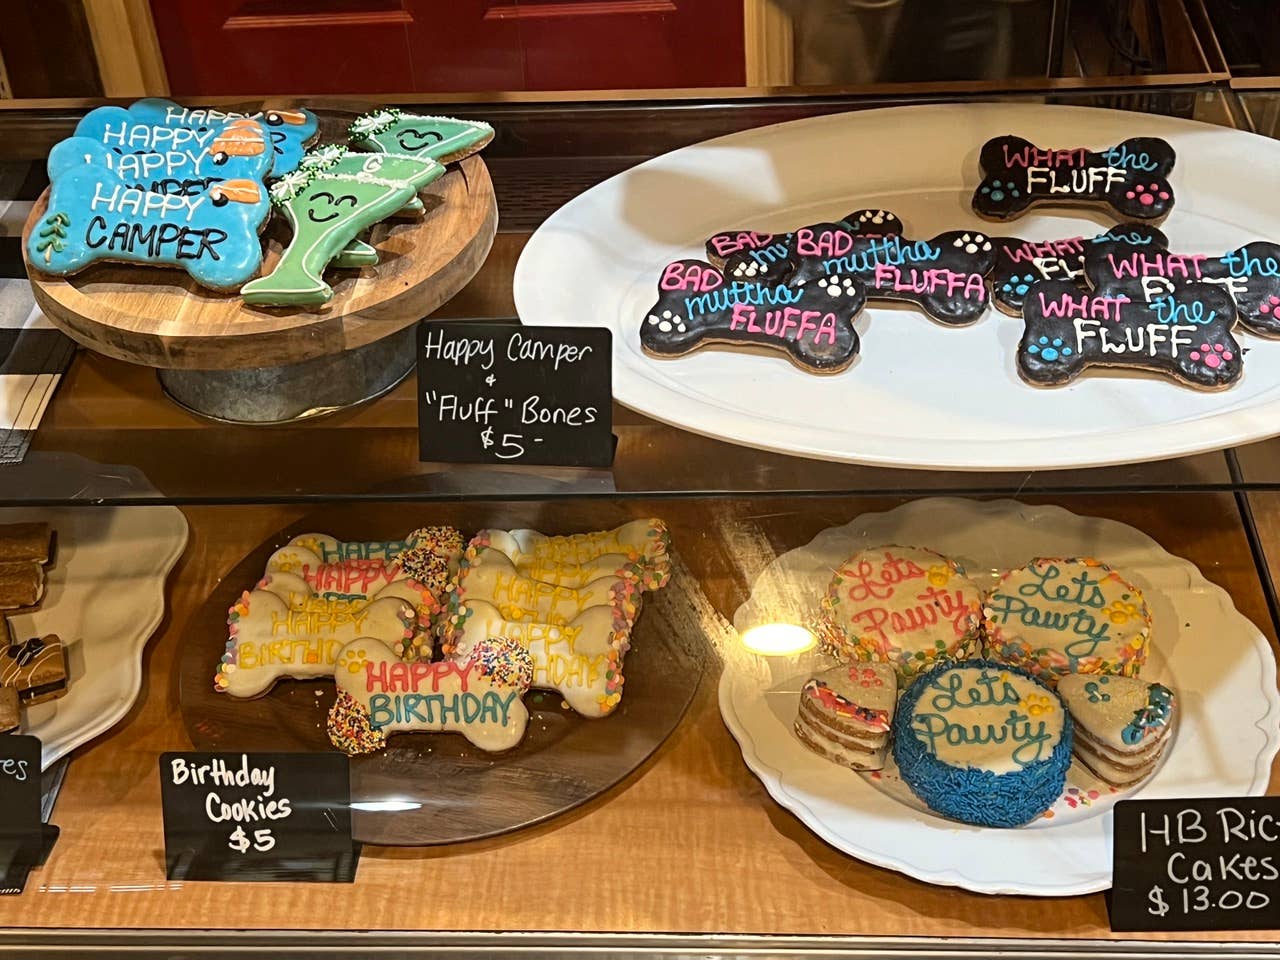 HAPPY
HAPPY
HAPPY
HAPPY
CAMPER
WHAT the
FLUFF
BAD
BAD
muttha
FLUFFA
BAD
muttha
FLUFFA
WHAT the
WHAT the
WHAT the
FLUFF
Happy Camper
&
"Fluff" Bones
$5-
HAPPY
HAPPY
HAPPY
BIRTHDAY
HAPPY
BIRTHDAY
HAPPY
HAPPY
HAPPY
Lets
Pawty
Lets
Pawty
Lets
Pawty
Birthday
Cookies
$5
HB Ric
Cakes
$13.00